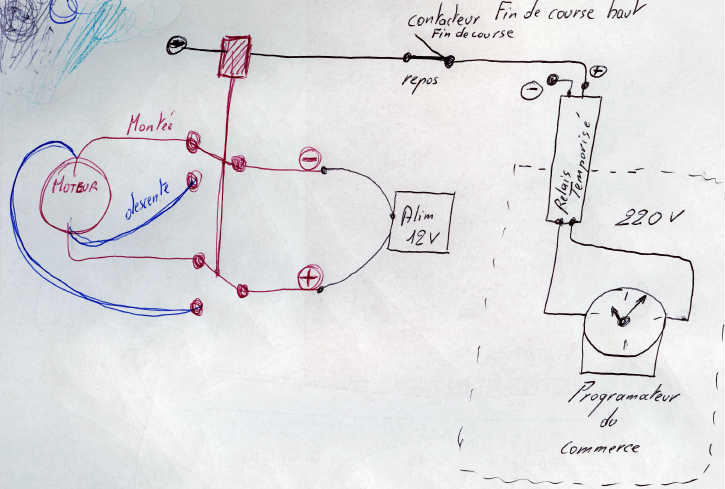 contacteur Fin de course haut
Fin de course
repos
-
+
-
Montée
MOTEUR
descente
-
+
Alim
12V
Relais
Temporisé
220V
Programateur
du
Commerce